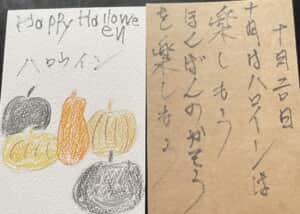 Happy Hallowe
en
ハロウイン
十月三日
十月はハロインは
楽しもう
ほんばんのかそう
を楽しもう